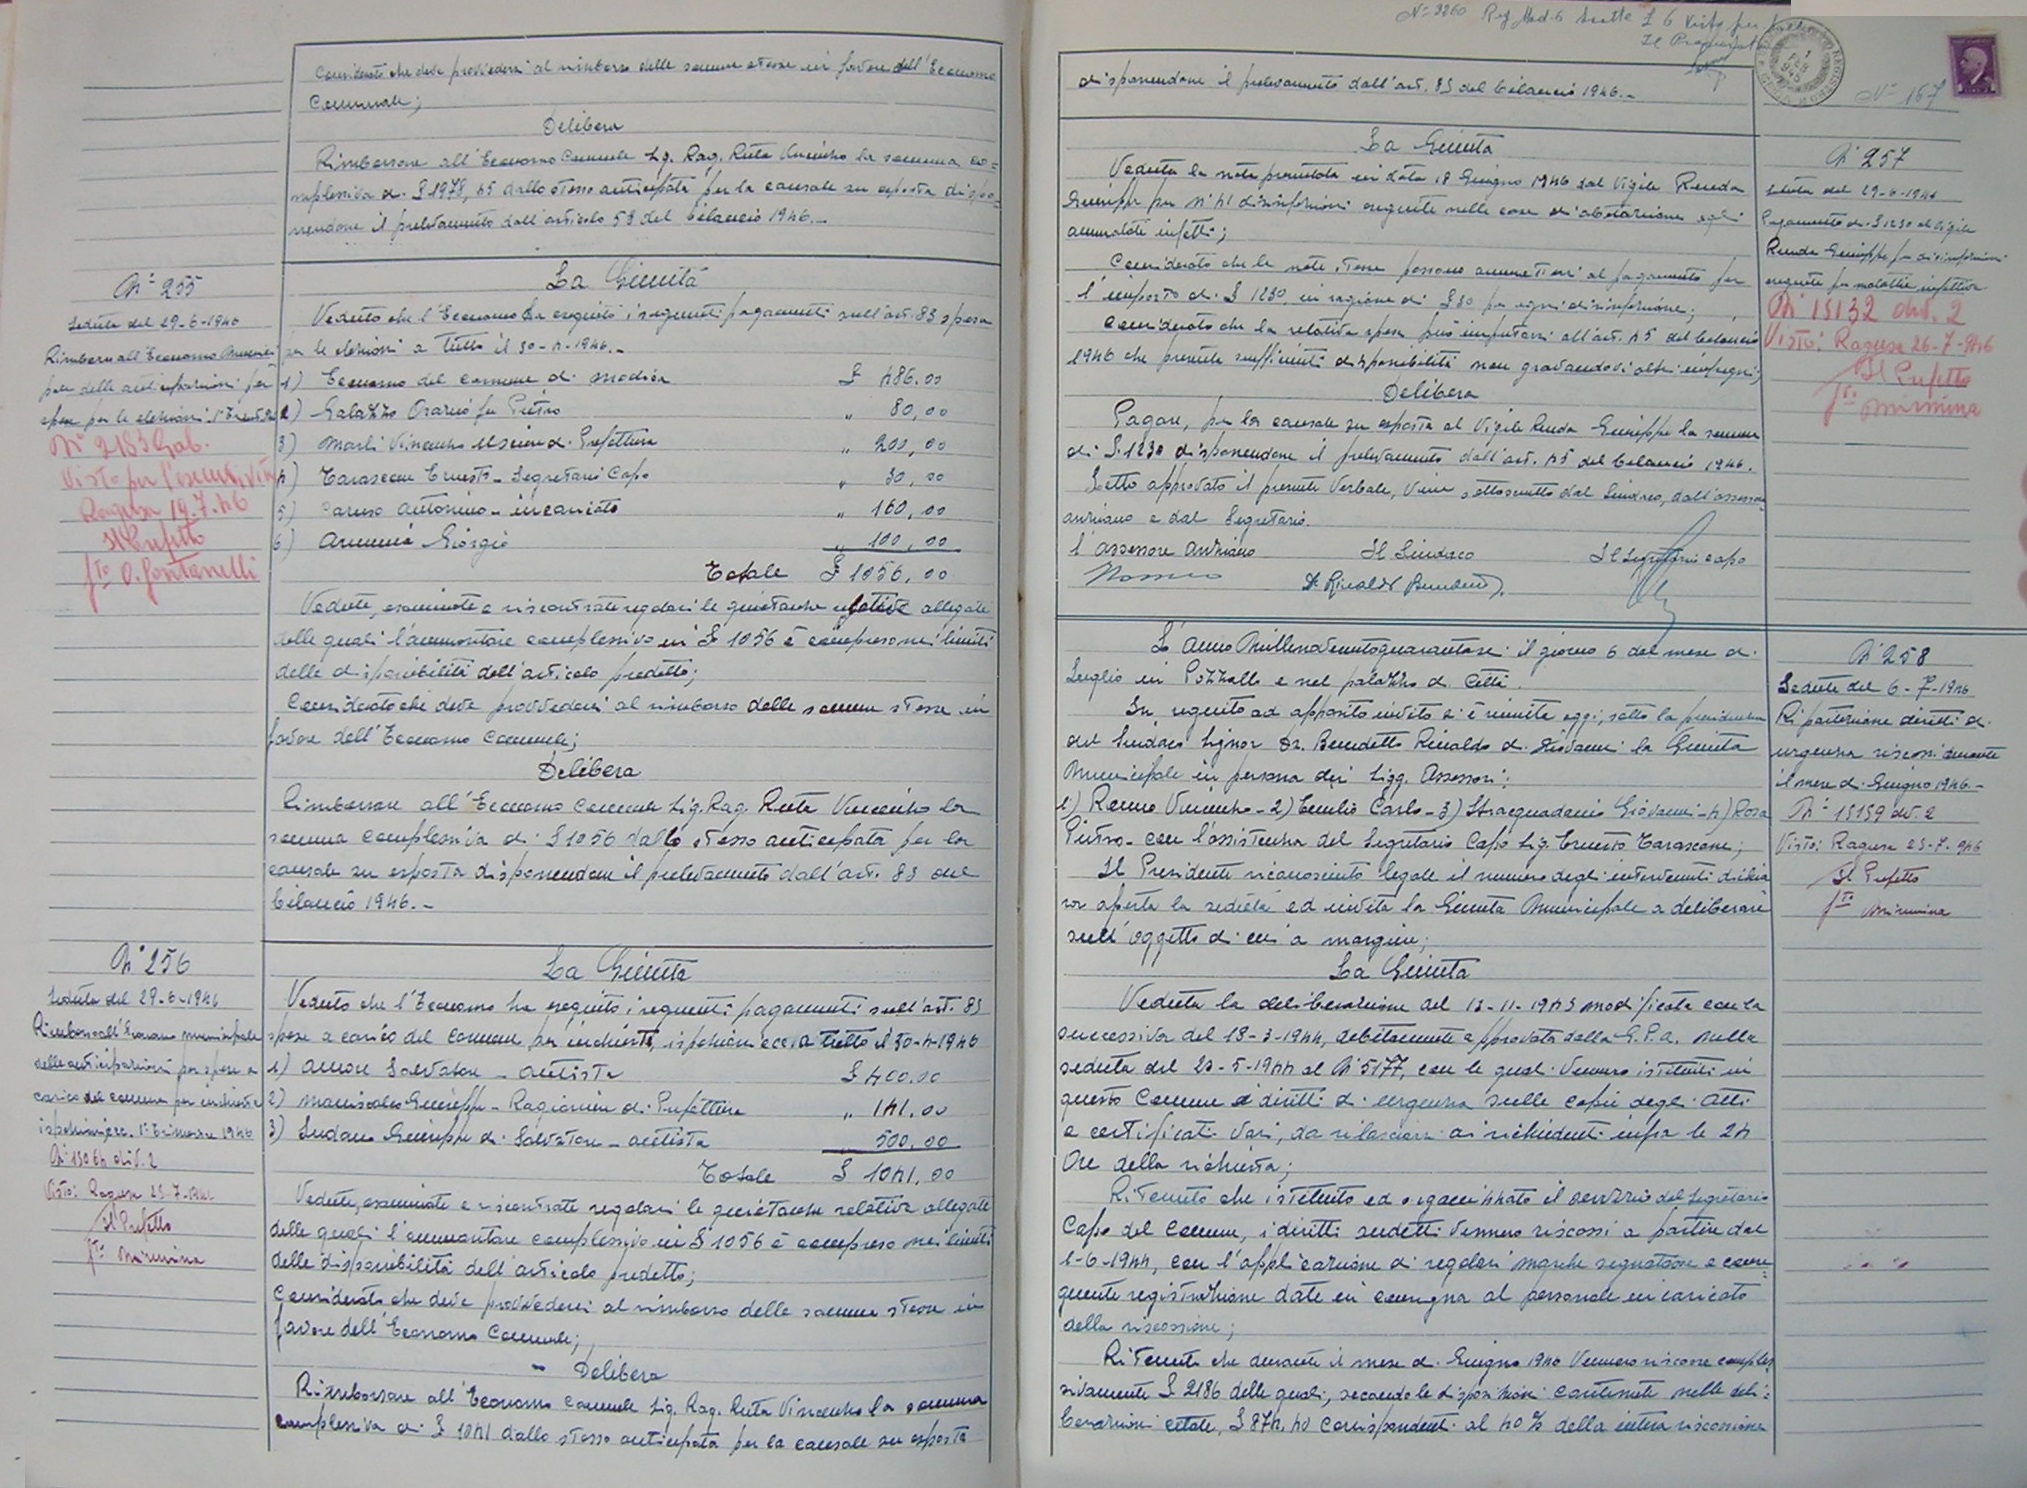 Considerato che deve provvedersi al rimborso delle somme stesse in favore dell'Economo
Comunale;
Delibera
Rimborsare all'Economo Comunale Sig. Rag. Ruta Vincenzo la somma co=
mplessiva di £ 1978,45 dallo stesso anticipata per la causale su esposta dispo=
nendone il prelevamento dall'articolo 58 del bilancio 1946.-
N° 255
Seduta del 29-6-1946
Rimborso all'Economo
delle anticipazioni per
spese per le elezioni 1° Trimestre
N° 2183 Gab.
Visto per l'esecutività
Ragusa 19.7.46
Il Prefetto
f.to O. Fontanelli
La Giunta
Veduto che l'Economo ha eseguito i seguenti pagamenti sull'art. 83 spesa
per le elezioni a tutto il 30-4-1946.-
1) Economo del Comune di Modica £ 486,00
2) Galazzo Orazio fu Pietro " 80,00
3) Marli Vincenzo Usciere di Prefettura " 200,00
4) Tarascone Ernesto - Segretario Capo " 30,00
5) Caruso Antonino - incaricato " 160,00
6) Armenia Giorgio " 100,00
Totale £ 1056,00
Vedute, esaminate e riscontrate regolari le quietanze relative allegate
delle quali l'ammontare complessivo in £ 1056 è compreso nei limiti
delle disponibilità dell'articolo predetto;
Considerato che deve provvedersi al rimborso delle somme stesse in
favore dell'Economo Comunale;
Delibera
Rimborsare all'Economo Comunale Sig. Rag. Ruta Vincenzo la
somma complessiva di £ 1056 dallo stesso anticipata per la
causale su esposta disponendone il prelevamento dall'art. 83 del
bilancio 1946.-
N° 256
Seduta del 29-6-1946
Rimborso all'Economo municipale
delle anticipazioni per spese a
carico del comune per inchieste
ispezioni ecc. 1° Trimestre 1946
N° 15064 div. 2
Visto: Ragusa 25-7-1946
Il Prefetto
f.to Mirmina
La Giunta
Veduto che l'Economo ha eseguito i seguenti pagamenti sull'art. 83
spese a carico del Comune per inchieste, ispezioni ecc. a tutto il 30-4-1946
1) Amore Salvatore - autista £ 400,00
2) Maniscalco Giuseppe - Ragioniere di Prefettura " 141,00
3) Sudano Giuseppe di Salvatore - autista 500,00
Totale £ 1041,00
Vedute, esaminate e riscontrate regolari le quietanze relative allegate
delle quali l'ammontare complessivo in £ 1056 è compreso nei limiti
delle disponibilità dell'articolo predetto;
Considerato che deve provvedersi al rimborso delle somme stesse in
favore dell'Economo Comunale;
Delibera
Rimborsare all'Economo Comunale Sig. Rag. Ruta Vincenzo la somma
complessiva di £ 1041 dallo stesso anticipata per la causale su esposta
N° 3260
Il Procuratore
N° 157
disponendone il prelevamento dall'art. 83 del bilancio 1946.-
La Giunta
Veduta la nota presentata in data 18 Giugno 1946 dal Vigile Renda
Giuseppe per n° 41 disinfezioni eseguite nelle case di abitazione egli
ammalati infetti;
Considerato che le note stesse possono ammettersi al pagamento per
l'importo di £ 1230, in ragione di £ 30 per ogni disinfezione;
Considerato che la relativa spesa può imputarsi all'art. 45 del bilancio
1946 che presenta sufficienti disponibilità non gravandovi altri impegni;
Delibera
Pagare, per la causale su esposta al Vigile Renda Giuseppe la somma
di £ 1230 disponendone il prelevamento dall'art. 45 del bilancio 1946.
Letto approvato il presente Verbale, viene sottoscritto dal Sindaco, dall'assessore
anziano e dal Segretario.
L'assessore anziano Il Sindaco Il Segretario capo
Dr Rinaldo Benedetto
N° 257
Seduta del 29-6-1946
Pagamento di £ 1230 al Vigile
Renda Giuseppe per disinfezioni
eseguite per malattie infettive
N° 15132 div. 2
Visto: Ragusa 26-7-946
Il Prefetto
f.to Mirmina
L'anno Millenovecentoquarantasei il giorno 6 del mese di
Luglio in Pozzallo e nel palazzo di Città.
In seguito ad apposito invito si è riunita oggi, sotto la presidenza
del Sindaco Signor Dr. Benedetto Rinaldo di Giovanni la Giunta
Municipale in persona dei Sigg. Assessori:
1) Romeo Vincenzo - 2) Emilio Carlo - 3) Stracquadanio Giovanni - 4) Rosa
Pietro - con l'assistenza del Segretario Capo Sig. Ernesto Tarascone;
Il Presidente riconosciuto legale il numero degli intervenuti dichia
ra aperta la seduta ed invita la Giunta Municipale a deliberare
sull'oggetto di cui a margine;
La Giunta
Veduta la deliberazione del 13-11-1943 modificata con la
successiva del 18-3-1944, debitamente approvata dalla G.P.A. nella
seduta del 20-5-1944 al N° 5177, con le quali vennero istituiti in
questo Comune i diritti di urgenza sulle copie degli atti
e certificati vari, da rilasciare ai richiedenti infra le 24
Ore della richiesta;
Ritenuto che istituito ed organizzato il servizio dal Segretario
Capo del Comune, i diritti suddetti vennero riscossi a partire dal
1-6-1944, con l'applicazione di regolari marche segnatasse e conse=
guente registrazione date in consegna al personale incaricato
della riscossione;
Ritenuto che durante il mese di Giugno 1946 Vennero riscosse comples
sivamente £ 2186 delle quali, secondo le disposizioni contenute nelle deli=
berazioni citate, £ 874,40 corrispondenti al 40% della intera riscossione
N° 258
Seduta del 6-7-1946
Ripartizione diritti di
urgenza riscossi durante
il mese di Giugno 1946.-
N° 15159 div. 2
Visto: Ragusa 25-7-946
Il Prefetto
f.to Mirmina